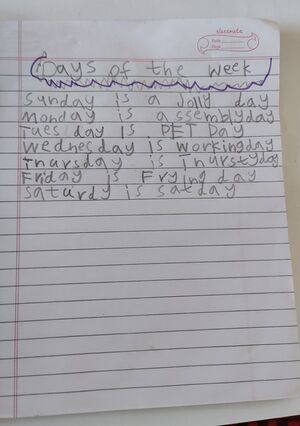 classmate
Date
Page
Days of the week
Sunday is a Jolly day
Monday is assemblyday
Tues day is PET Day
Wednesday is workingday
Thursday is Thurstyday
Friday is Frying day
Saturdy is satday